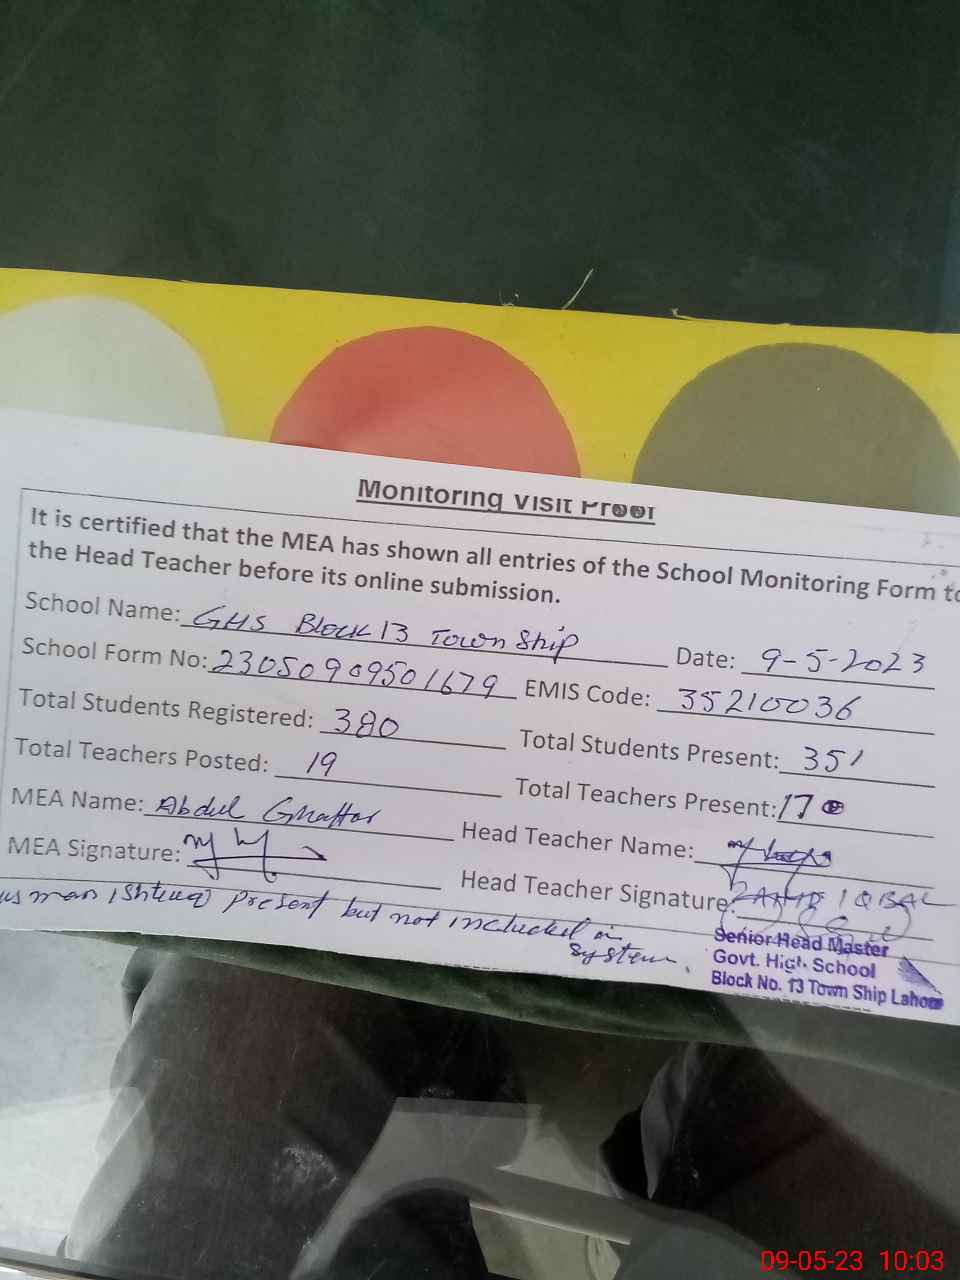 Monitoring Visit Proof
It is certified that the MEA has shown all entries of the School Monitoring Form to
the Head Teacher before its online submission.
School Name: GHS Block 13 Town Ship Date: 9-5-2023
School Form No: 23050909501679 EMIS Code: 35210036
Total Students Registered: 380 Total Students Present: 351
Total Teachers Posted: 19 Total Teachers Present: 17
MEA Name: Abdul Ghaffar Head Teacher Name:
MEA Signature: Head Teacher Signature: IQBAL
present but not included in
system.
Senior Head Master
Govt. High School
Block No. 13 Town Ship Lahore
09-05-23 10:03